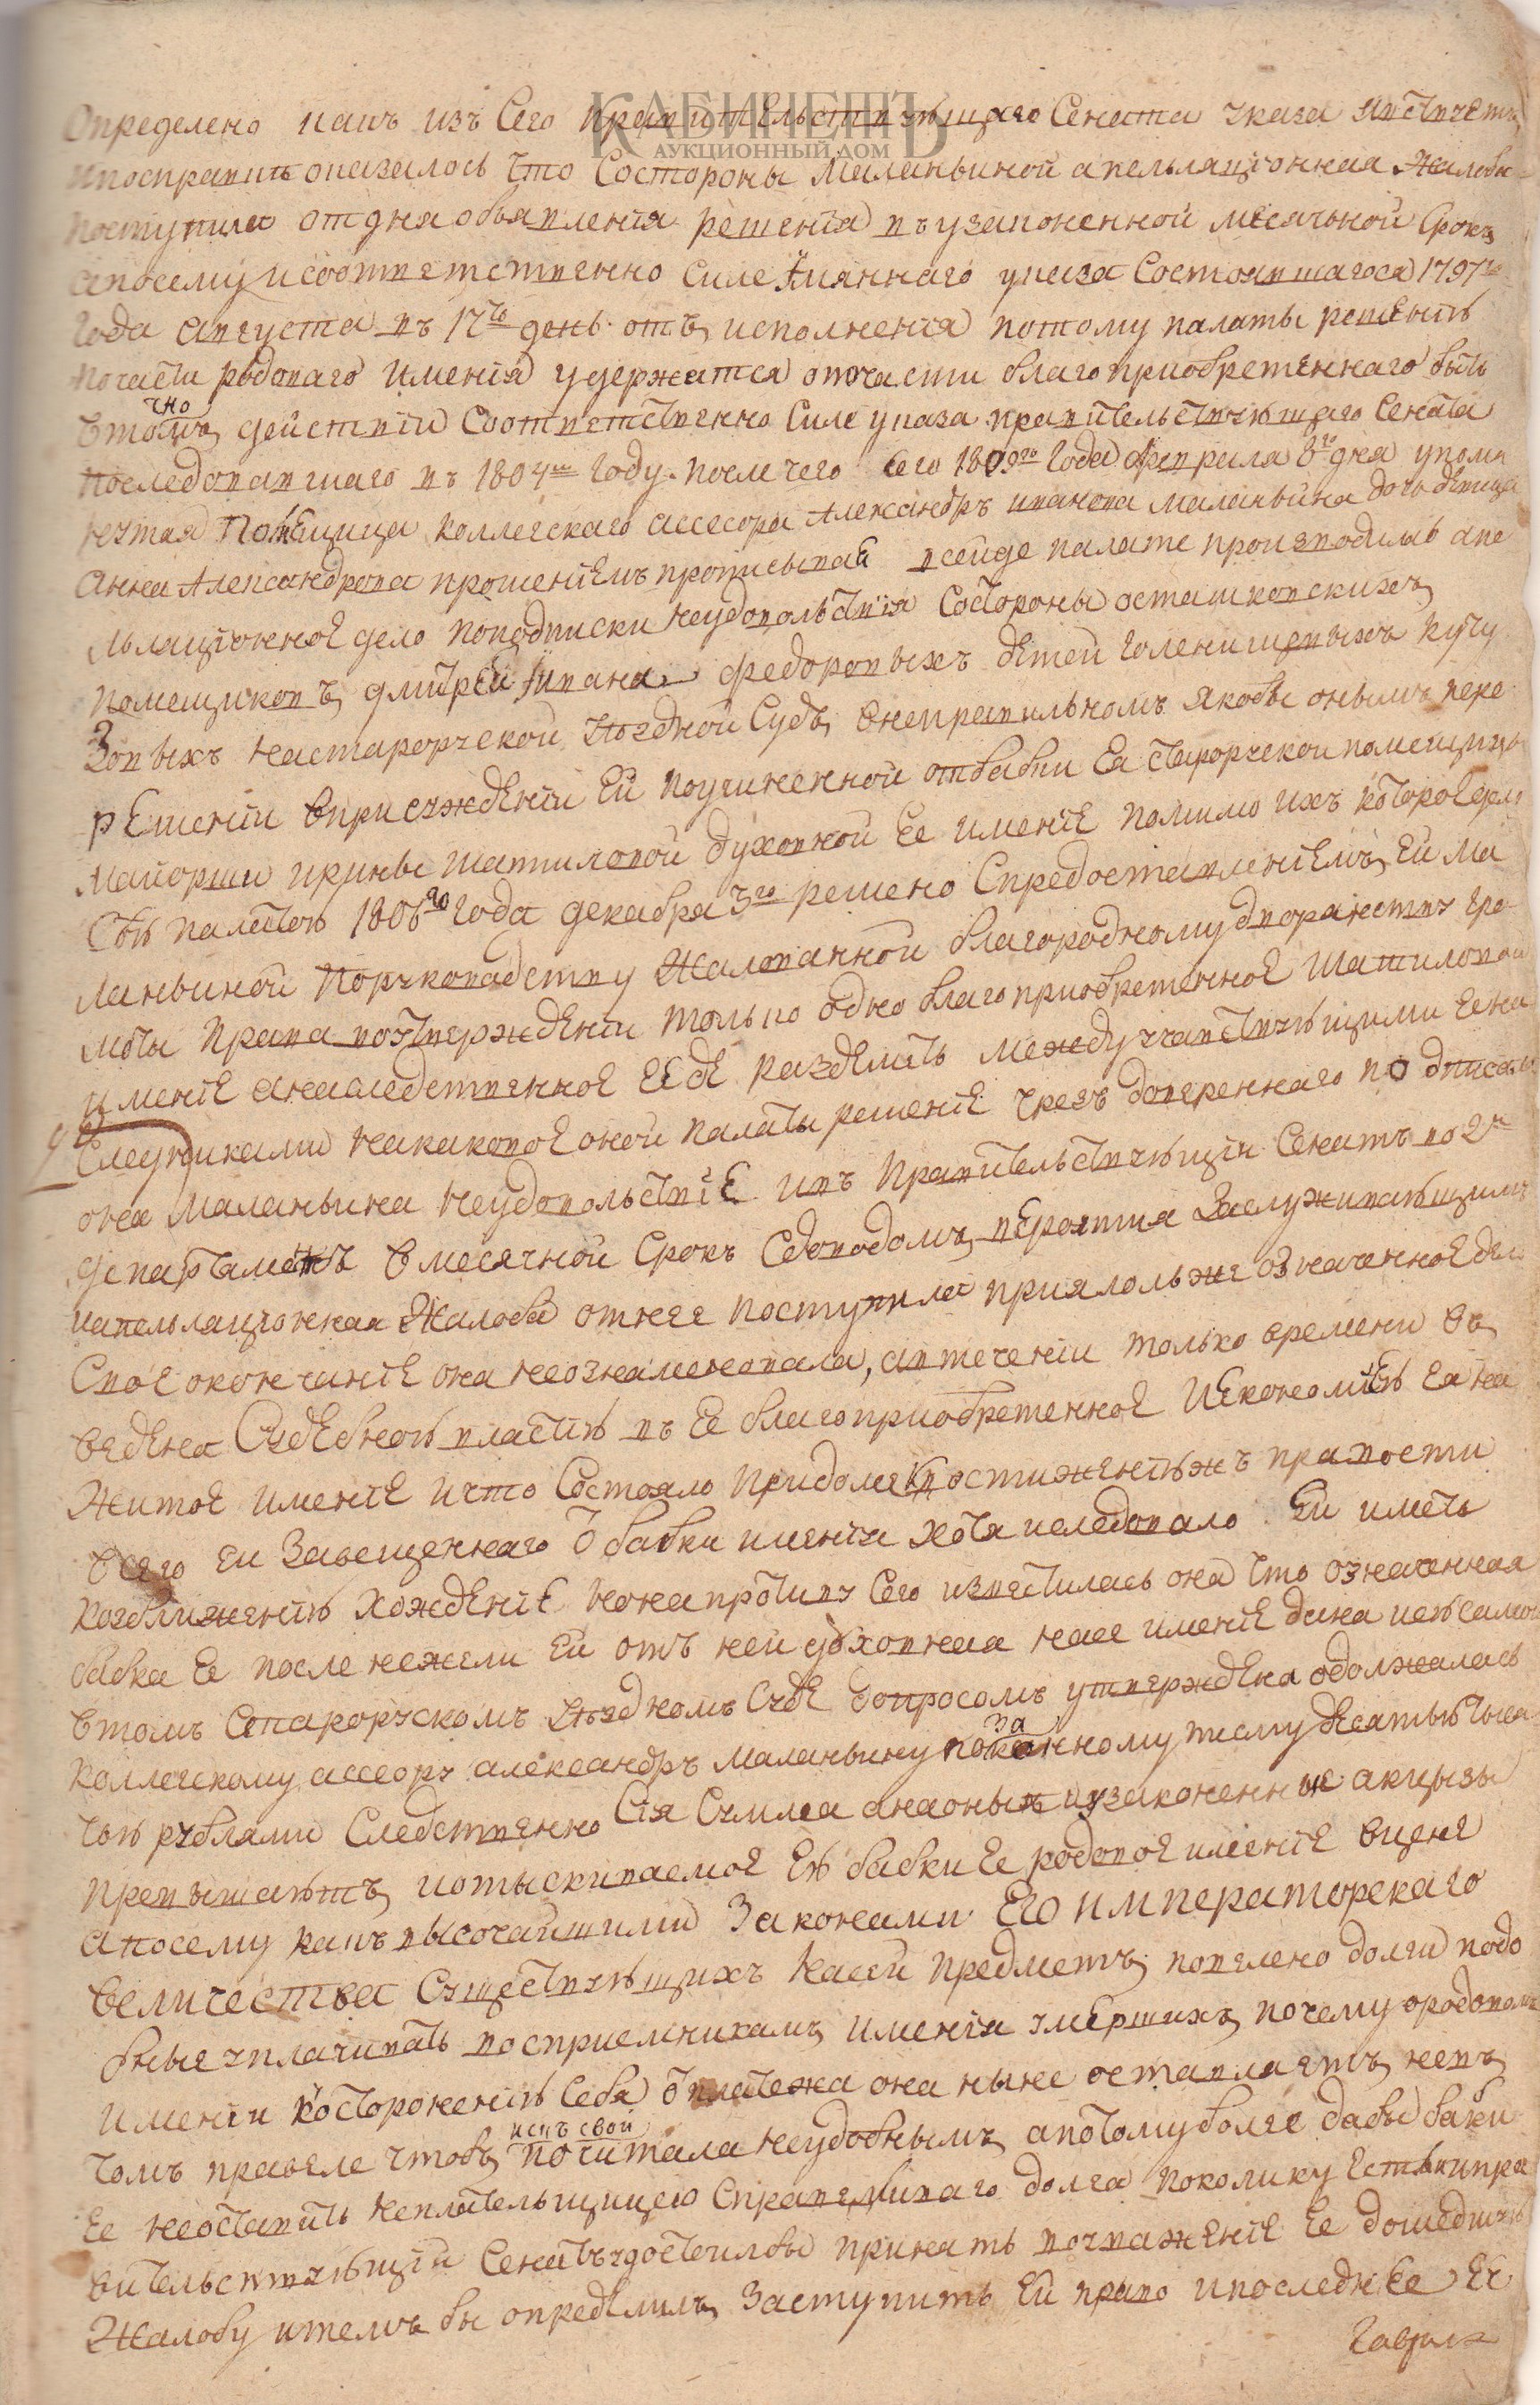 КАБИНЕТЪ
АУКЦИОННЫЙ ДОМ
Определено какъ изъ Сего Правительствующаго Сената указа
оказалось что Состороны Маланьиной апельляционная Жалоба
поступила отдня обьявления решения въ узаконенной месячной Срокъ
апосему исоответственно Силе Имяннаго указа Состоявшагося 1797го
года августа въ 17го день отъ исполнения потому палаты решенить
почасти родоваго Имения удержатся опочасти благоприобретеннаго быть
чно
втомъ действии Соответственно Силе указа правительствующаго Сената
последовавшаго въ 1804м году. после чего Сего 1809го года февраля 8го дня упомя
нутая Помещица коллежскаго ассесора Александръ иванова Маланьина дочь девица
Анна Александрова прошениемъ прописывая всейде палате производилсь апе
льляционное дело поподписки неудовольствия Состороны осташковскихъ
помещиковъ дмитрей Ивана федоровыхъ детей Голенищевыхъ куту
Зовыхъ настаророской Уездной Судъ, онеправильномъ якобы онымъ пере
решении вприсуждении Ей поучиненной отбабки Ея старорской помещицы
майорши ирины шатиловой духовной Ее имение помимо ихъ которое дело
Сею палатою 1806го года декабря 3го решено Спредоставлениемъ, Ей Ма
ланьиной поруководству Жалованной благородному дворянству гра-
моты права воутверждении только одно благоприобретенное шатиловой
имение анаследственное ееде разделить между участвующими ена
Следниками накаковое оной палаты решение чрезъ довереннаго подписала
она Маланьина неудовольствие ивъ Правительствующии Сенатъ по 2му
департаментъ вмесячной Срокъ Сдоводомъ вероятия Заслуживающимъ
иапельляционная Жалоба отнее поступила приялольже означенное дело
Свое окончание она неознаменовала, автечении только времени
введена Судебною властию въ Ее благоприобретенное Иекономию Ея на
житое имение ичто Состояло придоме Кпостижениюжъ правости
всего Ей Завещеннаго О бабки имения хотя иследовало Ей иметь
козближению хождение нонапротиву Сего известилась она что означенная
бабка Ее после нежели Ей отъ ней духовная наее имение дана иеюсамою
втомъ Старорускомъ Уездномъ Суде допросомъ утверждена одолжалась
Коллежскому ассеору александръ Маланьину поза
данному писму десятью тыся
чью рублями Следственно Сия Сумма анаоные иузаконенные акцызы
превышаютъ иотыскиваемое Ею бабки Ее родовое имение вцене
апосему какъ высочайшими Законами Его императорскаго
величества Существующихъ насей предметъ, повелено долги подо
бные уплачивать восприемникамъ имения умершихъ, почему ородовомъ
имении косторонению Себя О платежа она ныне оставляетъ невъ
томъ правеле чтобъ искъ свой почитала неудобнымъ, апотому более дабы бабки
Ее неоставить неплательщицею Справедливаго долга поколику естьли пра
вительствующии Сенатъ удостоилбы принять воуважение Ее дошедшую
Жалобу итемъ бы определилъ, Заступить Ей право ипоследнее Ее